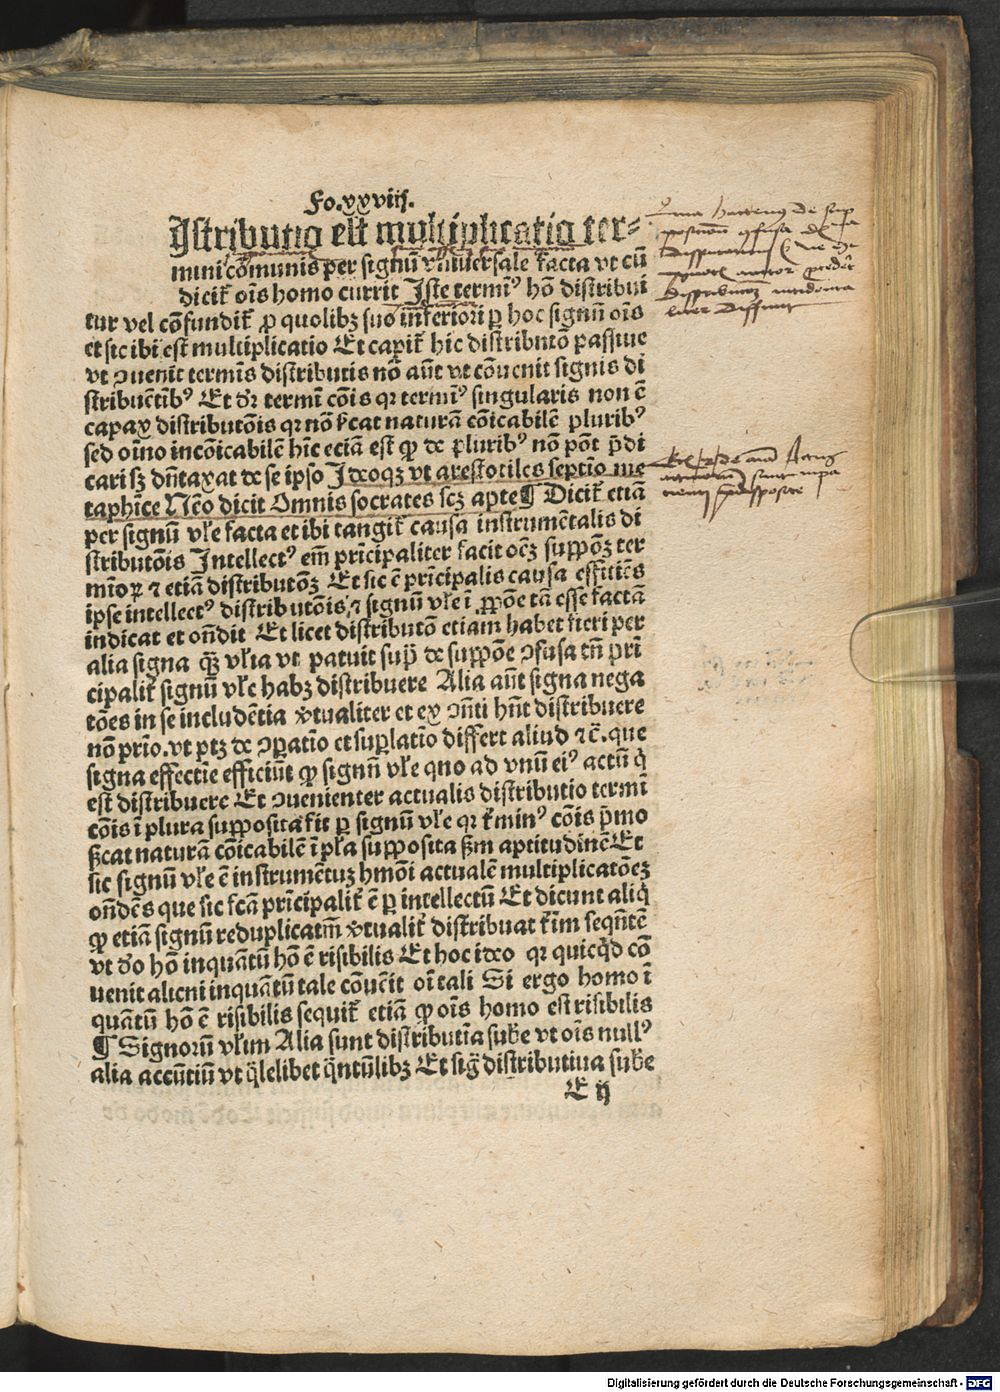 Fo.xxviij.
Istributio est multiplicatio ter-
mini cōmunis per signū vniuersale facta vt cū
dicit̄ oīs homo currit Iste termīꝰ hō distribui
tur vel cōfundit̄ ꝓ quolibꝫ suo inferiori ꝑ hoc signū oīs
et sic ibi est multiplicatio Et capit̄ hic distributō passiue
vt ꝯuenit termīs distributis nō aūt vt cōuenit signis di
stribuētibꝰ Et dꝛ termī cōis qꝛ termīꝰ singularis non ē
capax distributōnis qꝛ nō ſcat naturā cōicabilē pluribꝰ
sed oīno incōicabilē hīc eciā est ꝙ de pluribꝰ nō pōt p̄di
cari sꝫ dūtaxat de se ipso Ideoqꝫ vt arestotiles septīo me
taphīce Nēo dicit Omnis socrates scꝫ apte ¶ Dicit̄ etiā
per signū vl̄e facta et ibi tangit̄ causa instrumētalis di
stributōnis Intellectꝰ em̄ prīcipaliter facit oēꝫ suppōꝫ ter
mīoꝝ ⁊ etiā distributōꝫ Et sic ē prīcipalis causa efficiēs
ipse intellectꝰ distributōnis ⁊ signū vl̄e ī ꝓpōe tā esse factā
indicat et oñdit Et licet distributō etiam habet fieri per
alia signa q̄ꝫ vl̄ia vt patuit supͣ de suppōe ꝯfusa tn̄ prī
cipalit̄ signū vl̄e habꝫ distribuere Alia aūt signa nega
tōes in se includētia v̄tualiter et ex ꝯn̄ti hn̄t distribuere
nō prīo. vt ptꝫ de ꝯꝑatīo et suꝑlatīo differt aliud ⁊c̄. que
signa effectīe efficiūt ꝙ signū vl̄e qno ad vnū eiꝰ actū q̇
est distribuere Et ꝯuenienter actualis distributio termī
cōis ī plura supposita fit ꝑ signū vl̄e qꝛ t̄minꝰ cōis p̄mo
ſcat naturā cōicabilē ī pl̄a supposita ſm aptitudinē Et
sic signū vl̄e ē instrumētuꝫ hmōi actualē multiplicatōeꝫ
oñdēs que sic fcā prīcipalit̄ ē ꝑ intellectū Et dicunt aliq̇
ꝙ etiā signū reduplicatīū v̄tualit̄ distribuat t̄im seqn̄tē
vt dꝛo hō inquātū hō ē risibilis Et hoc ideo qꝛ quicq̇d cō
uenit alicni inquātū tale cōuēit oī tali Si ergo homo ī
quātū hō ē risibilis sequit̄ etiā ꝙ oīs homo est risibilis
¶ Signorū vl̄ium Alia sunt distributīa sube vt oīs nullꝰ
alia accn̄tiū vt q̄lelibet q̄ntūlibꝫ Et sig̈ distributiua sube
E ij
Digitalisierung gefördert durch die Deutsche Forschungsgemeinschaft - DFG